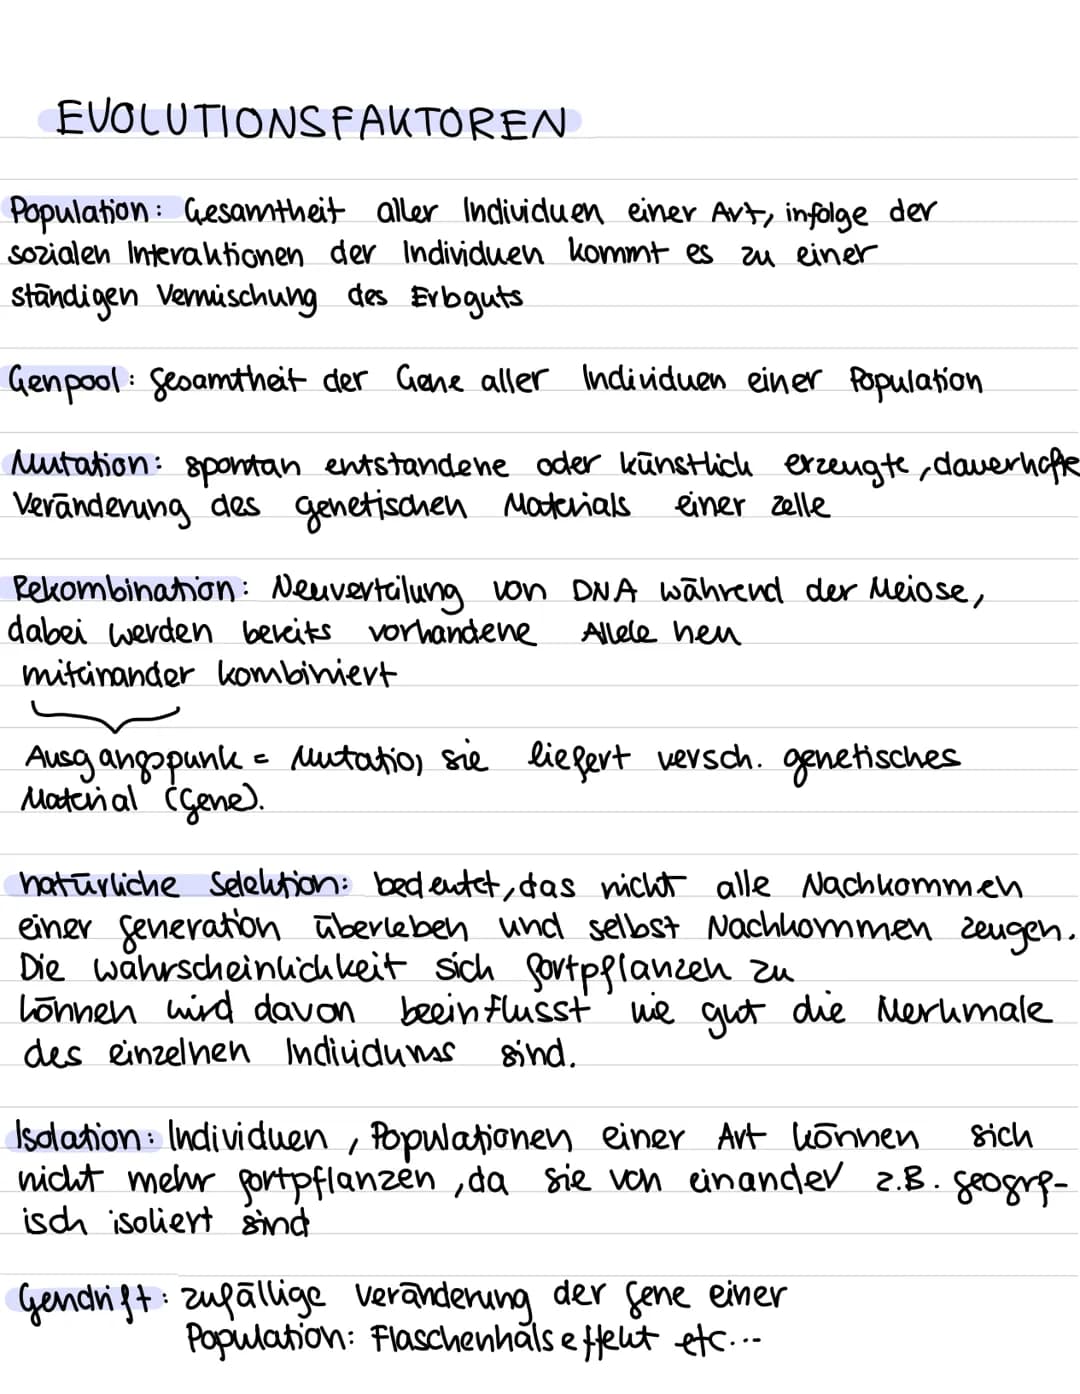 EVOLUTIONSFAKTOREN
Population: Gesamtheit aller Individuen einer Art, infolge der
sozialen Interaktionen der Individuen kommt es zu einer
ständigen Vermischung des Erbguts
Genpool: Gesamtheit der Gene aller Individuen einer Population
Mutation: spontan entstandene oder künstlich erzeugte, dauerhafte
Veränderung des genetischen Materials einer Zelle
Rekombination: Neuverteilung von DNA während der Meiose,
dabei werden bereits vorhandene Allele neu
miteinander kombiniert
Ausgangspunk = Mutation, sie liefert versch. genetisches
Material (Gene).
natürliche Selektion: bedeutet, das nicht alle Nachkommen
einer Generation überleben und selbst Nachkommen zeugen.
Die wahrscheinlichkeit sich fortpflanzen zu
können wird davon beeinflusst wie gut die Merkmale
des einzelnen Individums sind.
Isolation: Individuen, Populationen einer Art können sich
nicht mehr fortpflanzen, da sie von einander z.B. geogrp-
isch isoliert sind
Gendrift: zufällige veränderung der Gene einer
Population: Flaschenhalseffekt etc...